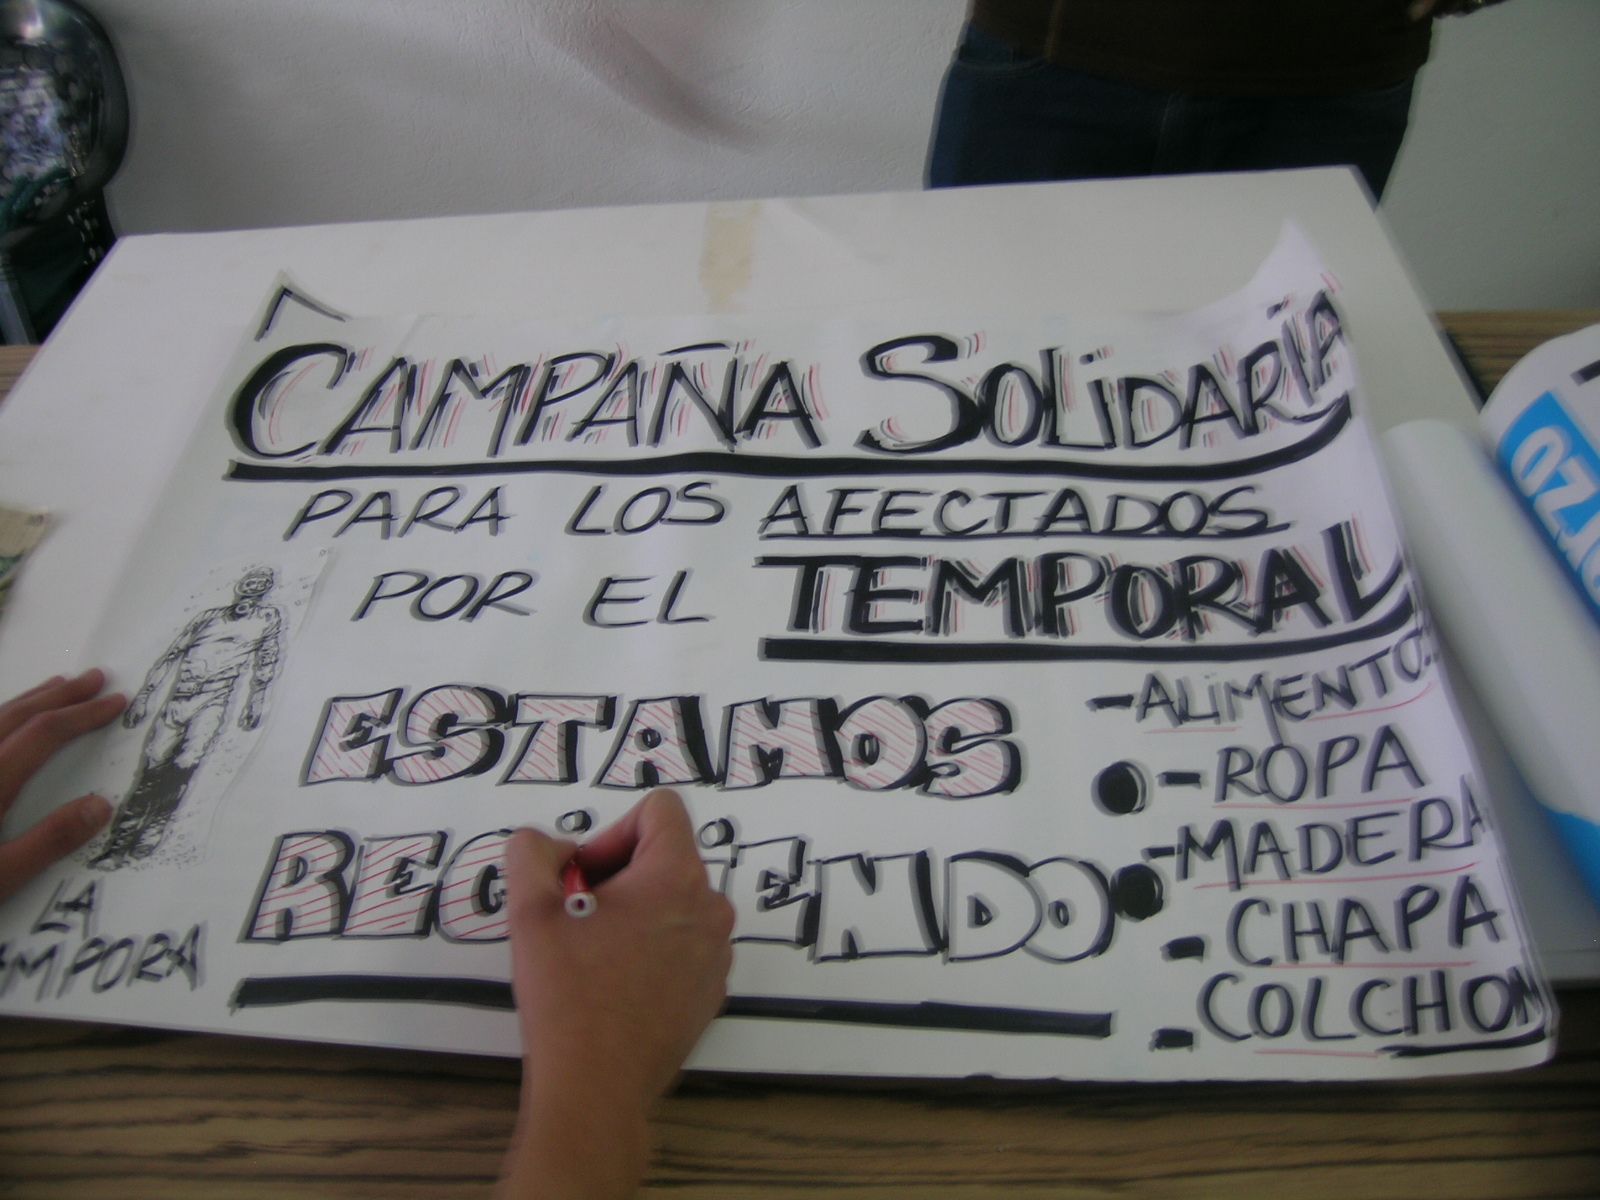 CAMPAÑA SOLiDARÍA
PARA LOS AFECTADOS
POR EL TEMPORAL
ESTAMOS
REC iENDO
-ALiMENTO
- ROPA
-MADERA
- CHAPA
- COLCHON
LA
MPORA